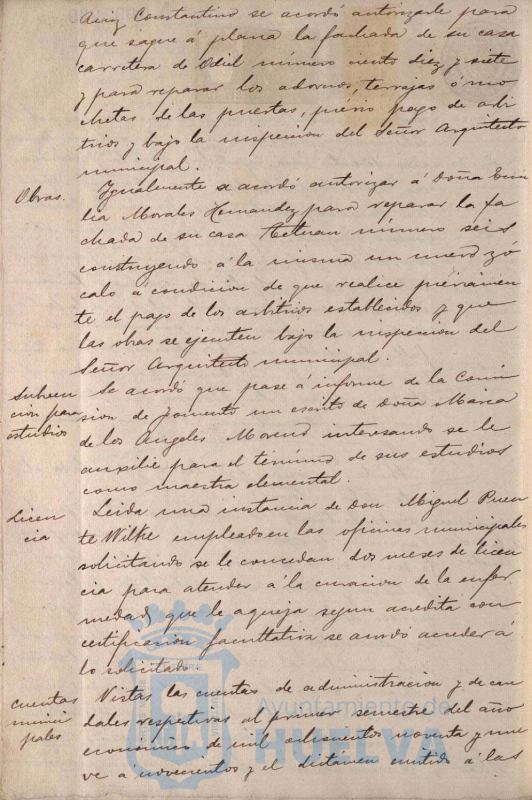 Constantino se acordó autorizarle para
que saque á plana la fachada de su casa
carretera de Odiel número ciento diez y siete
y para reparar los adornos, terrajas ó mo
chetas de las puertas, prévio pago de arbi
trios y bajo la inspeccion del Señor Arquitecto
municipal.
Obras.
Igualmente se acordó autorizar á Doña Emi
lia Morales Hernandez para reparar la fa
chada de su casa Tetuan número seis
construyendo á la misma un nuevo zó
calo á condicion de que realice préviamen
te el pago de los arbitrios establecidos y que
las obras se ejecuten bajo la inspeccion del
Señor Arquitecto municipal.
Subven
cion para
estudios
Se acordó que pase á informe de la Comi
sion de Fomento un escrito de Doña Maria
de los Angeles Moreno interesando se le
auxilie para el término de sus estudios
como maestra elemental.
Licen
cia
Leida una instancia de Don Miguel Puen
te Wilke empleado en las oficinas municipales
solicitando se le concedan dos meses de licen
cia para atender á la curacion de la enfer
medad que le aqueja segun acredita con
certificacion facultativa se acordó acceder á
lo solicitado.
Cuentas
munici
pales
Vistas las cuentas de administracion y de cau
dales respetivas al primer semestre del año
económico de mil ochocientos noventa y nue
ve á novecientos y el dictámen emitido á las
Ayuntamiento de
HUELVA